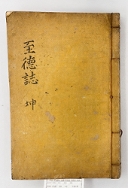 至德誌
坤